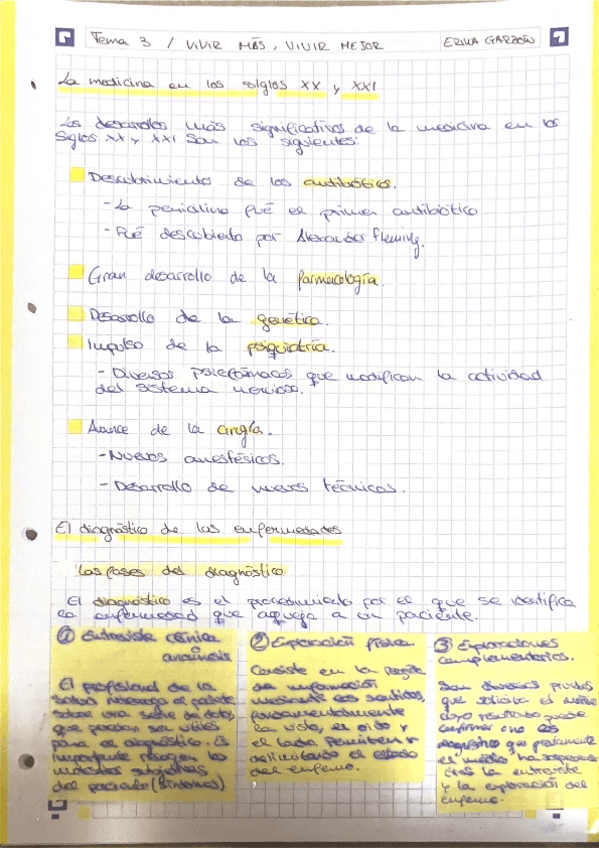 Tema 3 / VIVIR MÁS, VIVIR MEJOR ERIKA GARZÓN
La medicina en los siglos XX y XXI
Los desarrollos más significativos de la medicina en los
Siglos XX y XXI son los siguientes:
Descubrimiento de los antibióticos.
- La penicilina fué el primer antibiótico
- Fué descubierto por Alexander Fleming.
Gran desarrollo de la farmacología.
Desarrollo de la genética.
Impulso de la psiquiatría.
- Diversos psicofármacos que modifican la actividad
del sistema nervioso.
Avance de la cirugía.
- Nuevos anestésicos.
- Desarrollo de nuevas técnicas.
El diagnóstico de las enfermedades
Las fases del diagnóstico
El diagnóstico es el procedimiento por el que se identifica
la enfermedad que aqueja a un paciente.
① Entrevista clínica
anamnesis
El profesional de la
salud interroga al paciente
sobre una serie de datos,
que puedan ser útiles
para el diagnóstico. Es
importante recoger las
molestias subjetivas
del paciente (síntomas)
② Exploración física
Consiste en la
de información
mediante los sentidos,
fundamentalmente
la vista, el oído y
el tacto. Permiten
el estado
del enfermo.
③ Exploraciones
complementarias.
Son diversas pruebas
que solicita el médico
cuyo resultado puede
confirmar o no los
diagnóstico que previamente
el médico ha
tras la entrevista
y la exploración del
enfermo.